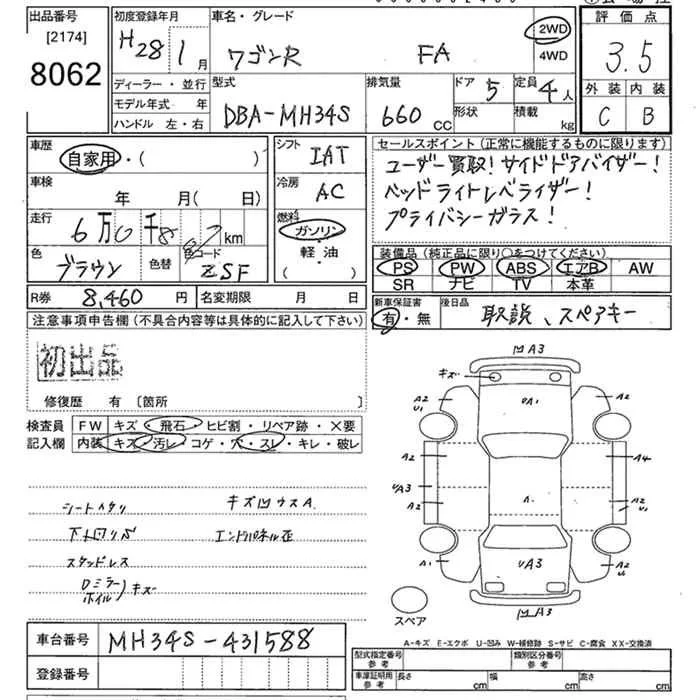 出品番号
[2174]
8062
初度登録年月
H28 1 月
ディーラー・並行
モデル年式 年
ハンドル 左・右
車名・グレード
ワゴンR FA
2WD
4WD
評価点
3.5
外装 内装
C B
型式
DBA-MH34S
排気量
660 cc
ドア 5
形状
定員 4 人
積載 kg
車歴
自家用・( )
車検
年 月( 日)
走行
6万0千8 km
色
ブラウン
色替
色コード
ZSF
シフト
IAT
冷房
AC
燃料
ガソリン
軽・油
( )
セールスポイント(正常に機能するものに限ります)
ユーザー買取!サイドドアバイザー!
ヘッドライトレベライザー!
プライバシーガラス!
装備品(純正品に限り○をつけてください)
PS PW ABS エアB AW
SR ナビ TV 本革
R券 8,460 円
名変期限 月 日
新車保証書
有・無
後日品
取説、スペアキー
注意事項申告欄(不具合内容等は具体的に記入して下さい)
初出品
修復歴 有〔箇所 〕
検査員記入欄
FW キズ・飛石・ヒビ割・リペア跡・×要
内装 キズ・汚レ・コゲ・穴・スレ・キレ・破レ
シートヘタリ
キズ凹ウスA.
下廻りS
エンドパネル歪
スタッドレス
ロミラー
ホイル
キズ
M A3
キズ
A2
U1
A2
UA3
A2
A1
A1
A.
A2
A4
A2
U1
A2
U
UA3
M A3
スペア
A-キズ E-エクボ U-凹み W-補修跡 S-サビ C-腐食 XX-交換済
車台番号 MH34S-431588
登録番号
型式指定番号
参考
類別区分番号
参考
車庫証明用
参考
長さ cm
幅 cm
高さ cm